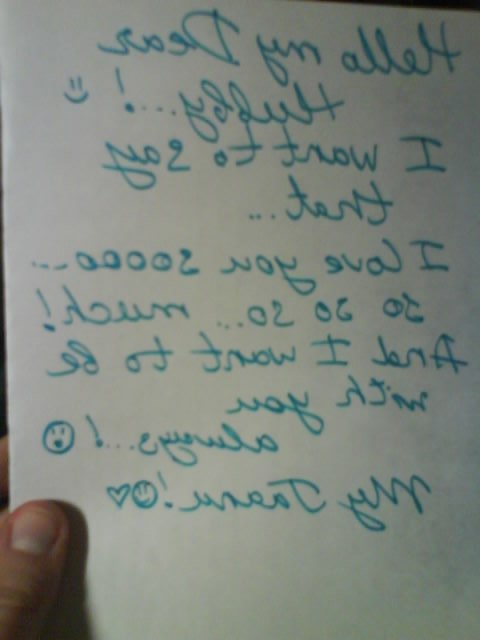 Hello my Dear
Hubby...! ☺
I want to say
that...
I love you soooo...
so so so... much!
And I want to be
with you
always...! ☺
My Jaanu! ☺♡